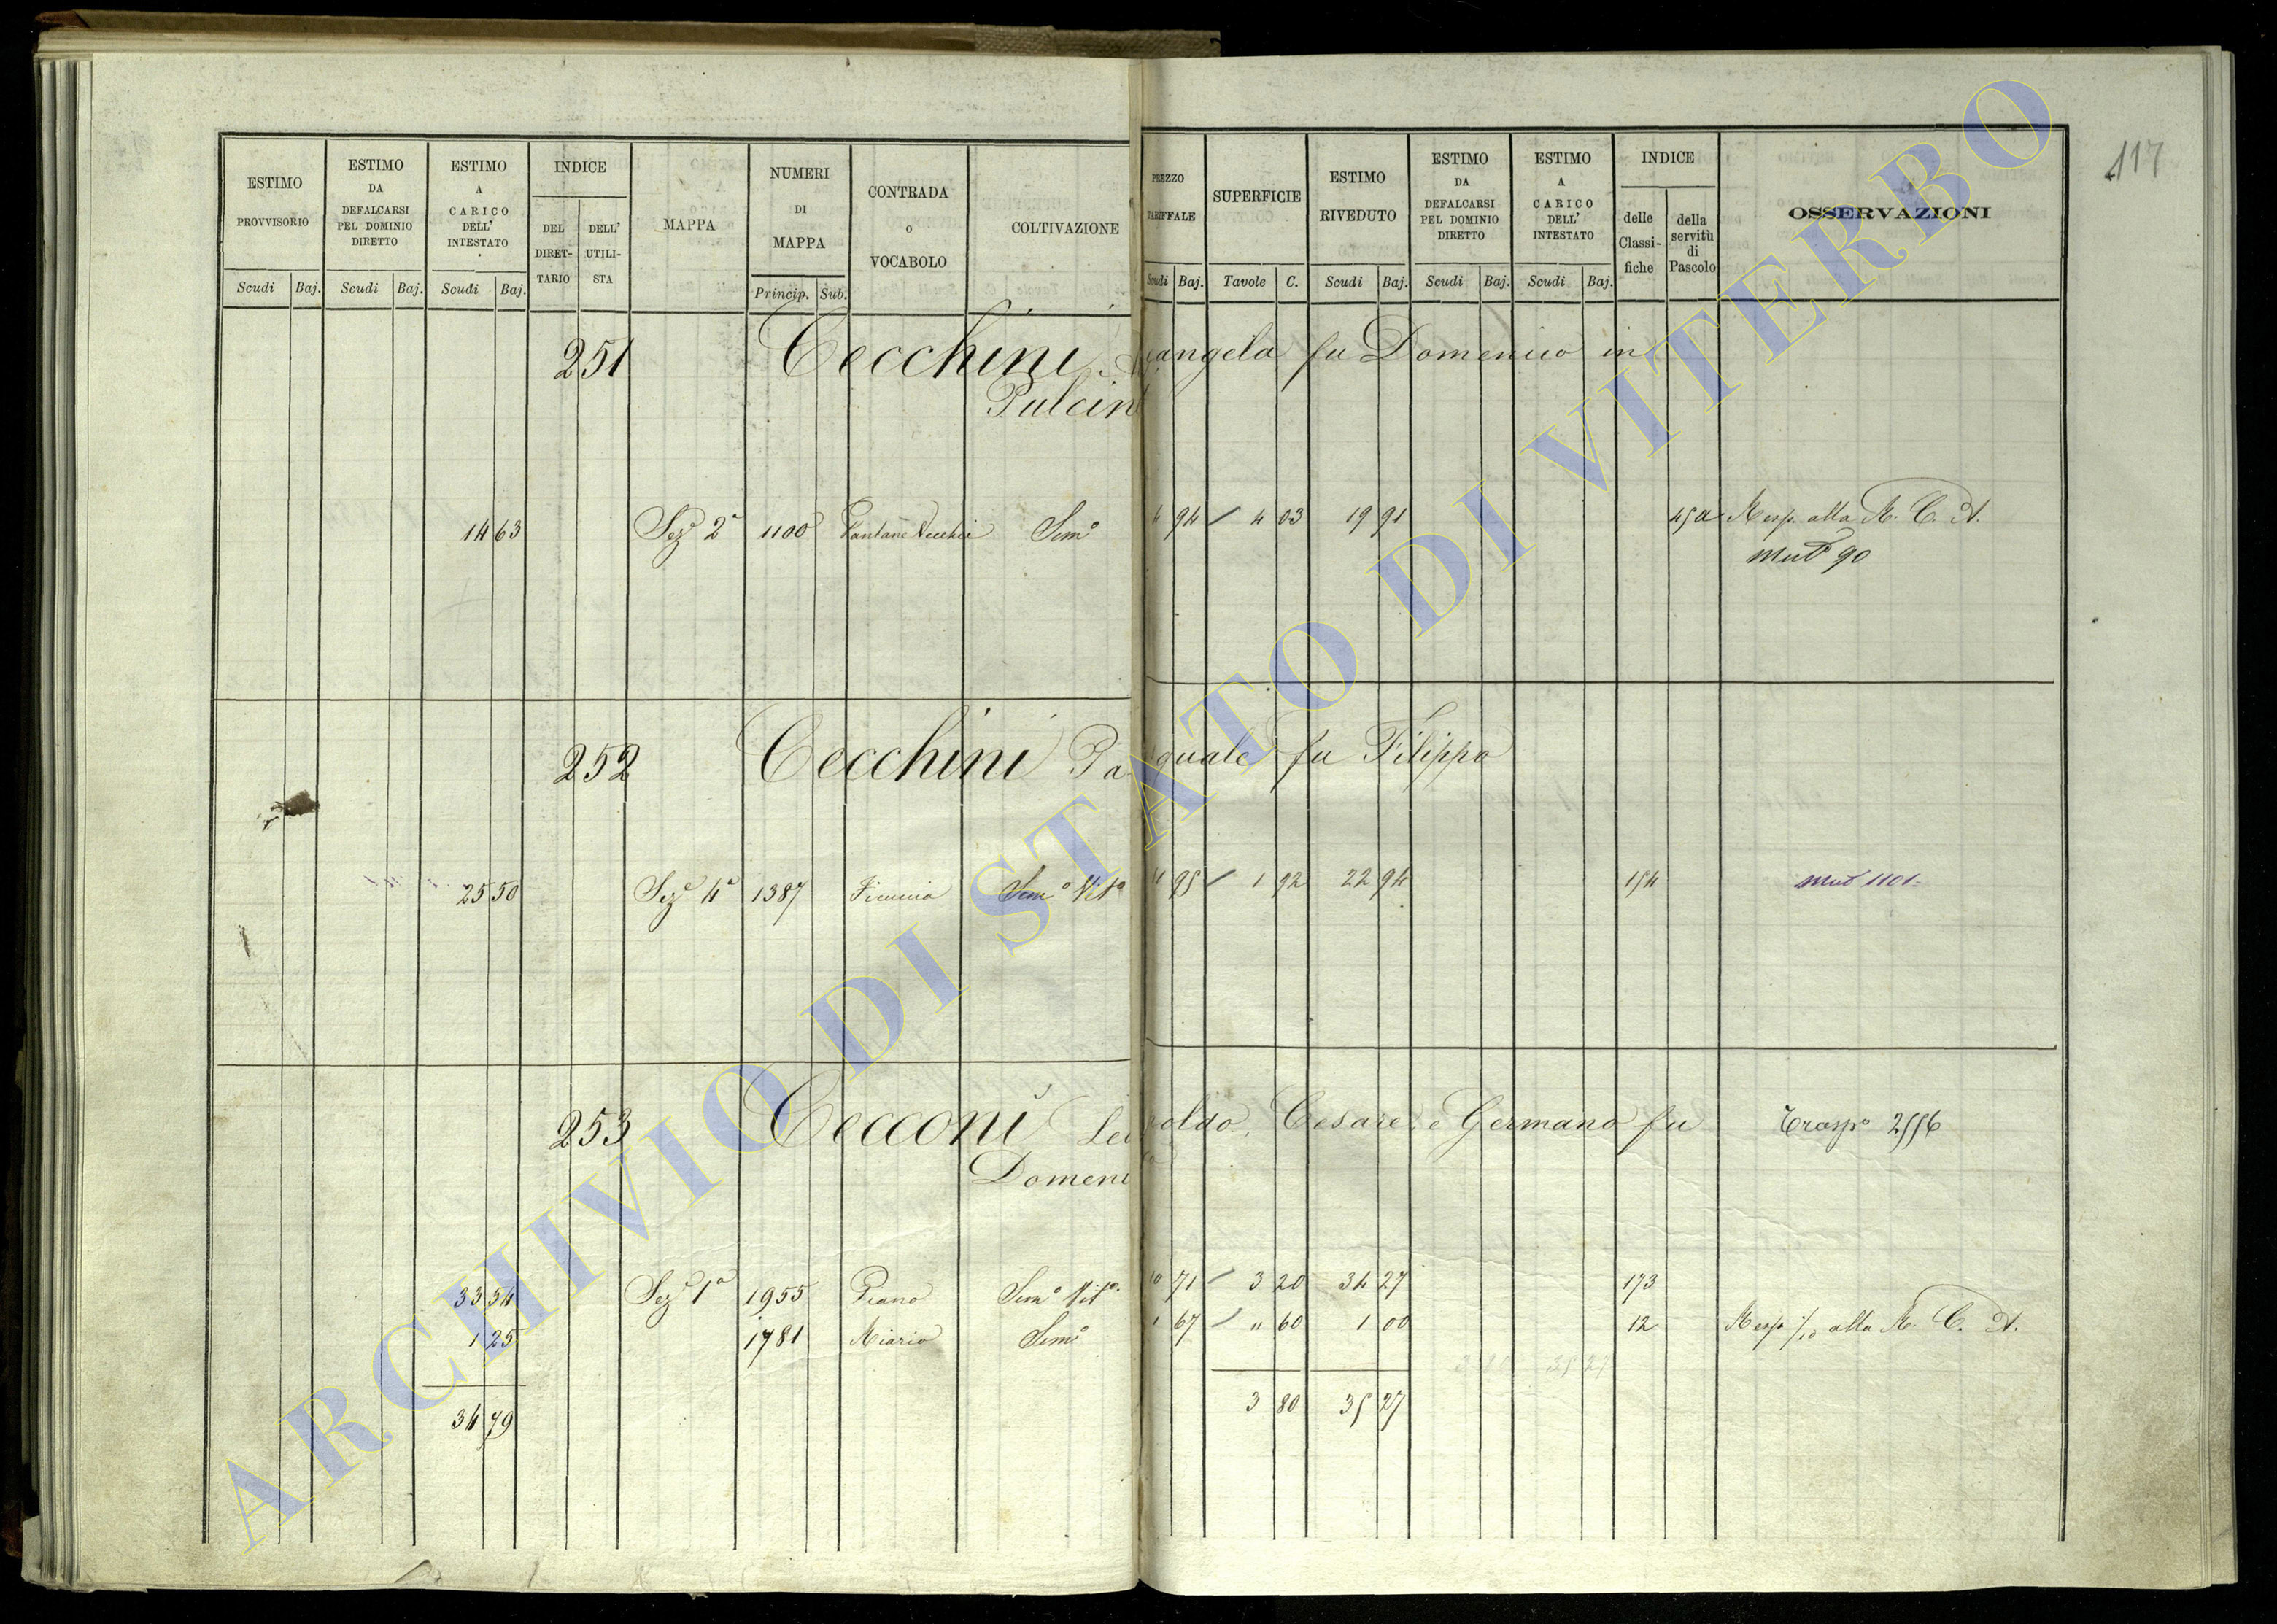 117
ESTIMO PROVVISORIO
ESTIMO DA DEFALCARSI PEL DOMINIO DIRETTO
ESTIMO A CARICO DELL' INTESTATO
INDICE
DEL DIRET-TARIO
DELL' UTILI-STA
MAPPA
NUMERI DI MAPPA
CONTRADA o VOCABOLO
COLTIVAZIONE
PREZZO TARIFFALE
SUPERFICIE
ESTIMO RIVEDUTO
ESTIMO DA DEFALCARSI PEL DOMINIO DIRETTO
ESTIMO A CARICO DELL' INTESTATO
INDICE
delle Classi-fiche
della servitù di Pascolo
OSSERVAZIONI
Scudi Baj. Scudi Baj. Scudi Baj. Princip. Sub. Scudi Baj. Tavole C. Scudi Baj. Scudi Baj. Scudi Baj.
251 Cecchini angela fu Domenico in
Pulcin
14 63 Sez 2a 1100 Semo 4 94 4 03 19 91 Resp. alla R. C. A.
Muto 90
252 Cecchini Pasquale fu Filippo
25 50 Sez 4a 1387 Semo Vito 4 95 1 92 22 94 154 Mut 1101
253 Cecconi Leopoldo, Cesare e Germano fu Traspo 2556
Domenico
33 54 Sez 1a 1955 Piano Semo Vito 10 71 3 20 34 27 173
1 25 1781 Riario Semo 1 67 " 60 1 00 12 Resp 1/10 alla R. C. A.
34 79 3 80 35 27
ARCHIVIO DI STATO DI VITERBO